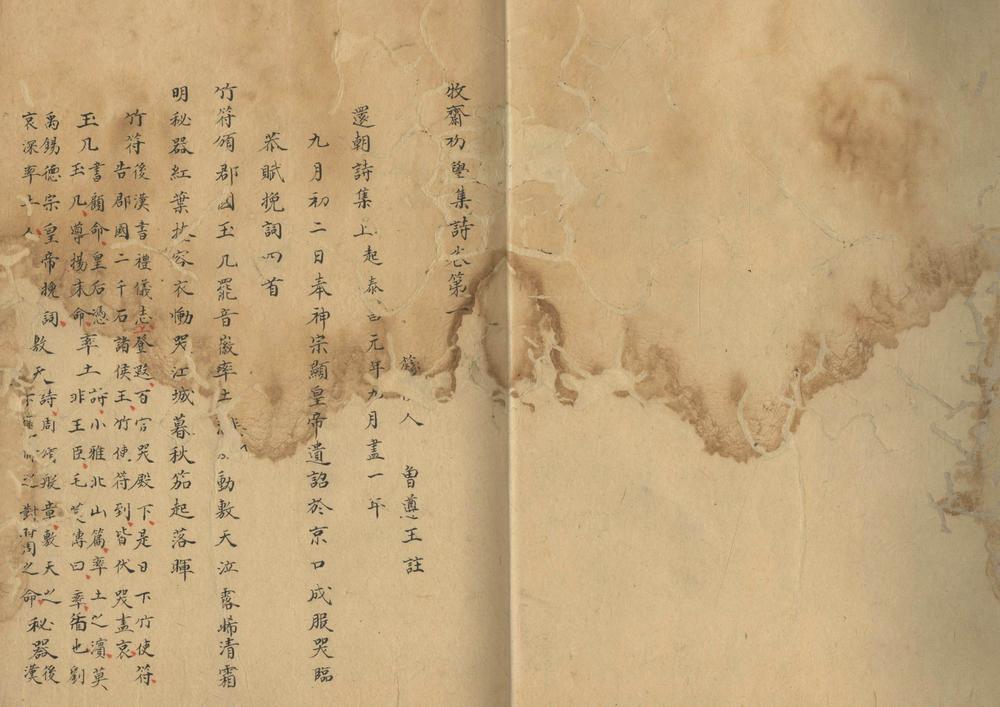 牧齋初學集詩註卷第一
人 魯 遵王 註
還朝詩集上 起泰昌元年九月盡一年
九月初二日奉神宗顯皇帝遺詔於京口成服哭臨
恭賦挽詞四首
竹符頒郡國玉几罷音徽率土非動敷天泣露晞清霜
明秘器紅葉扶容衣慟哭江城暮秋笳起落暉
竹符後漢書禮儀志登遐百官哭殿下是日下竹使符
告郡國二千石諸侯王竹使符到皆伏哭盡哀
玉几書顧命皇后憑玉几導揚末命
率土詩小雅北山篇率土之濱莫非王臣毛傳曰率循也劉
禹錫德宗皇帝挽詞
哀深率土人
敷天詩周頌般章敷天之下之對時周之命
秘器後漢